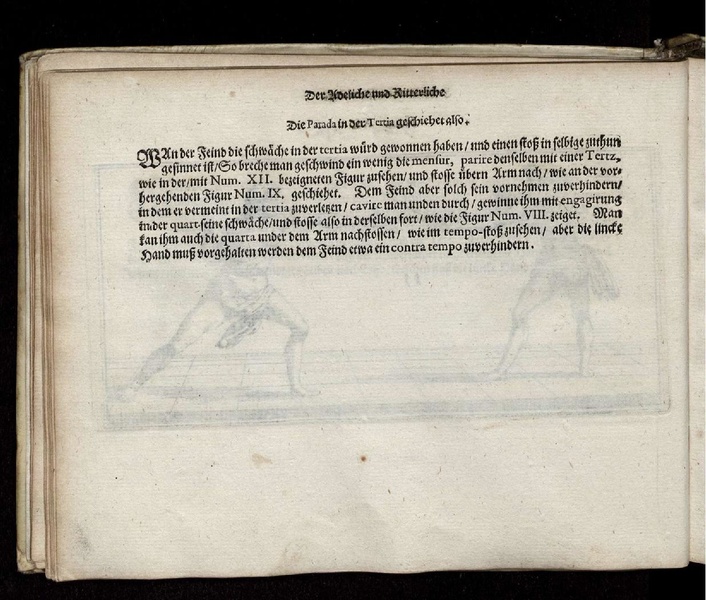 Der Adeliche und Ritterliche
Die Parada in der Tertia geschiehet also.
WAn der Feind die schwäche in der tertia würd gewonnen haben / und einen stoß in selbige zuthun
gesinnet ist / So breche man geschwind ein wenig die mensur, parire denselben mit einer Tertz,
wie in der / mit Num. XII. bezeigneten Figur zusehen / und stosse übern Arm nach / wie an der vor-
hergehenden Figur Num. IX, geschiehet. Dem Feind aber solch sein vornehmen zuverhindern /
in dem er vermeint in der tertia zuverletzen / cavire man unden durch / gewinne ihm mit engagirung
in der quart seine schwäche / und stosse also in derselben fort / wie die Figur Num. VIII. zeiget. Man
kan ihm auch die quarta under dem Arm nachstossen / wie im tempo-stoß zusehen / aber die lincke
Hand muß vorgehalten werden dem Feind etwa ein contra tempo zuverhindern.